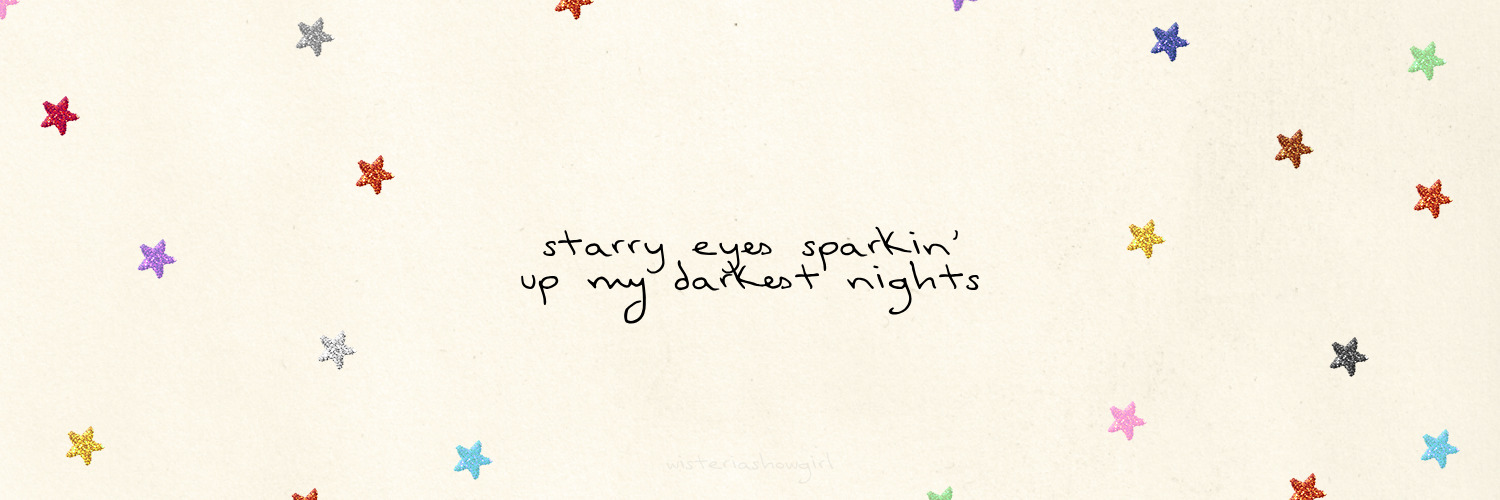 starry eyes sparkin'
up my darkest nights
wisteriashowgirl